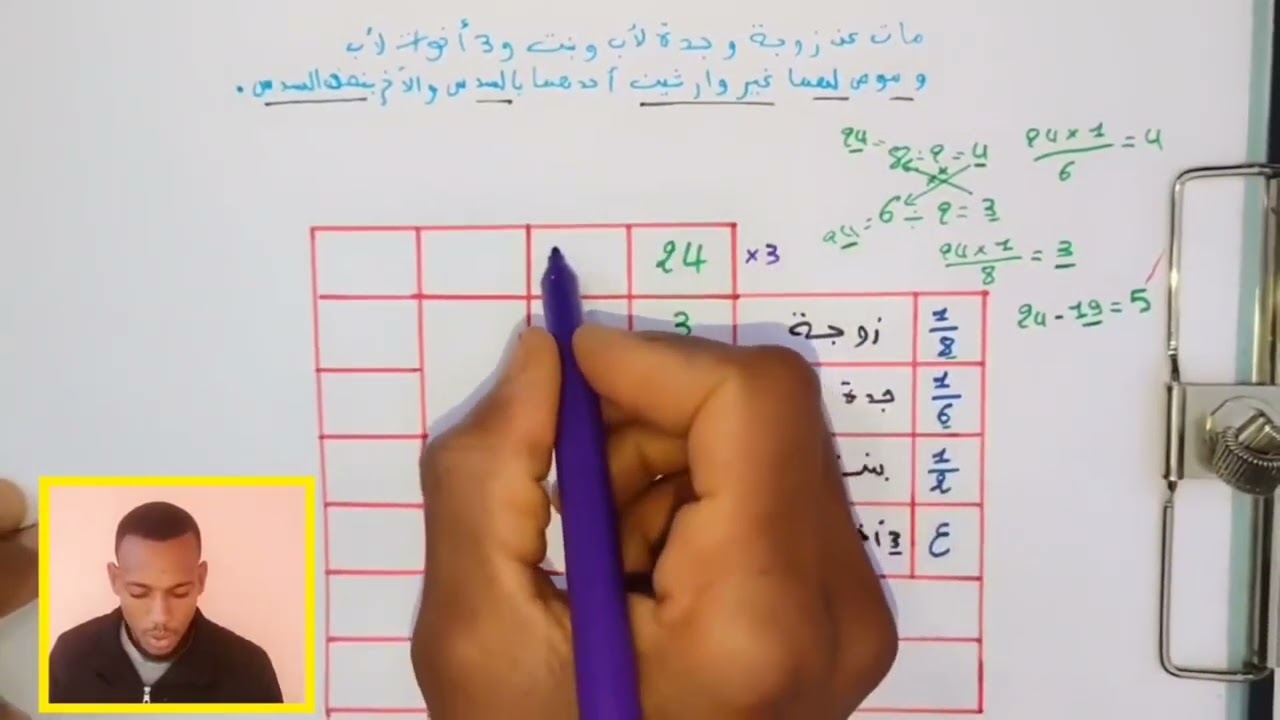 مات عن زوجة وجدة لأب وبنت و3 أخوات لأب
وموص لهما غير وارثين أحدهما بالسدس والآخر بنصف السدس.
24= 8÷2=4
24×1/6 = 4
24= 6÷2=3
24×1/8 = 3
24-19=5
24 ×3
1/8 زوجة 3
1/6 جدة
1/2
ع 3